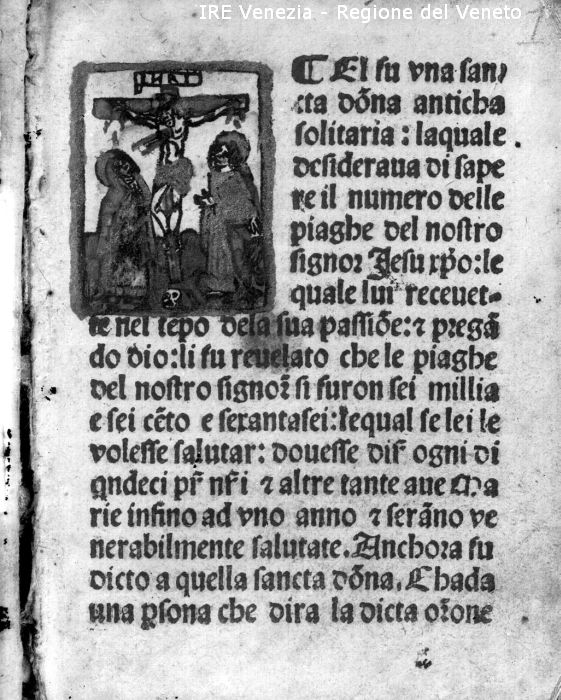 IRE Venezia - Regione del Veneto
¶ El fu vna san⸗
cta dōna anticha
solitaria : laquale
desideraua di sape
re il numero delle
piaghe del nostro
signoꝛ Jesu xp̄o:le
quale lui receuet⸗
te nel tēpo dela sua passiōe:⁊ pꝛegā
do dio:li fu reuelato che le piaghe
del nostro signoꝛ si furon sei millia
e sei cēto e sexantasei:lequal se lei le
volesse salutar: douesse dir̄ ogni di
qndeci pr̄ nr̄i ⁊ altre tante aue Ma
rie infino ad vno anno ⁊ serāno ve
nerabilmente salutate. Anchoꝛa fu
dicto a quella sancta dōna. Chada
una ꝑsona che dira la dicta oꝛ̄one